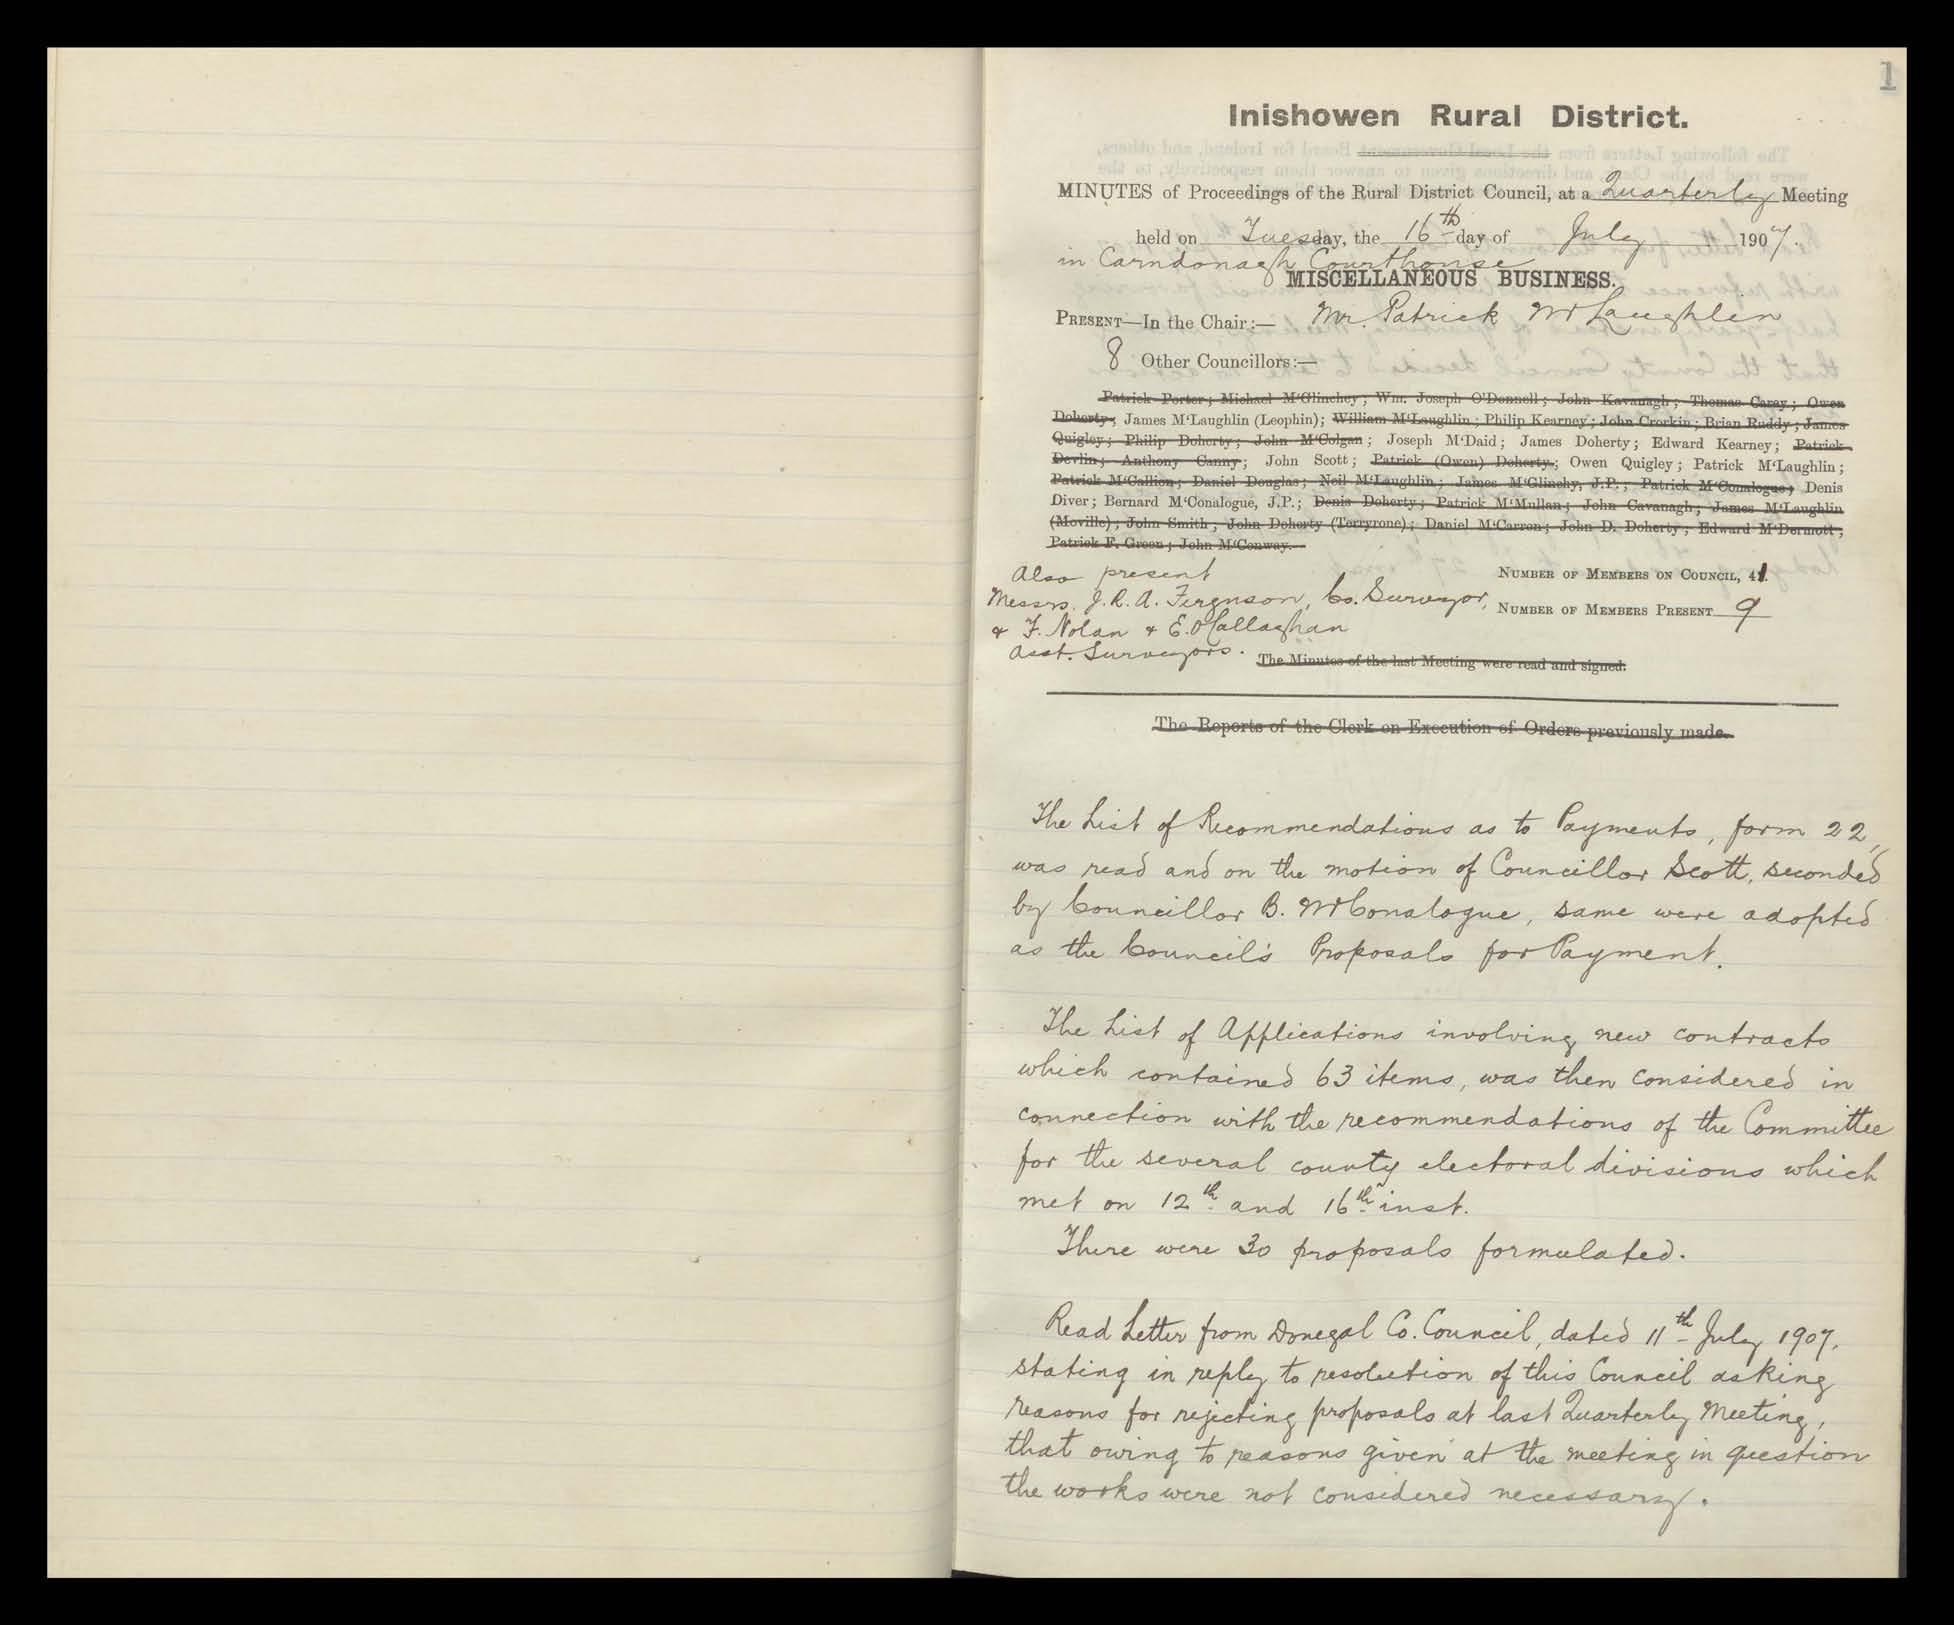 1
Inishowen Rural District.
MINUTES of Proceedings of the Rural District Council, at a Quarterly Meeting
held on Tuesday, the 16th day of July 1907.
in Carndonagh Courthouse
MISCELLANEOUS BUSINESS.
PRESENT—In the Chair:— Mr. Patrick McLaughlin
8 Other Councillors:—
Patrick Porter; Michael M'Glinchey; Wm. Joseph O'Donnell; John Kavanagh; Thomas Carey; Owen
Doherty; James M'Laughlin (Leophin); William M'Laughlin; Philip Kearney; John Crorkin; Brian Ruddy; James
Quigley; Philip Doherty; John M'Colgan; Joseph M'Daid; James Doherty; Edward Kearney; Patrick
Devlin; Anthony Canny; John Scott; Patrick (Owen) Doherty; Owen Quigley; Patrick M'Laughlin;
Patrick M'Callion; Daniel Douglas; Neil M'Laughlin; James M'Glinchy, J.P.; Patrick M'Conalogue; Denis
Diver; Bernard M'Conalogue, J.P.; Denis Doherty; Patrick M'Mullan; John Cavanagh; James M'Laughlin
(Moville); John Smith; John Doherty (Terryrone); Daniel M'Carron; John D. Doherty; Edward M'Dermott;
Patrick F. Green; John M'Conway.
Also present
Messrs. J.R.A. Ferguson, Co. Surveyor,
& F. Nolan & E. O'Callaghan
Asst. Surveyors.
NUMBER OF MEMBERS ON COUNCIL, 41.
NUMBER OF MEMBERS PRESENT 9
The Minutes of the last Meeting were read and signed.
The Reports of the Clerk on Execution of Orders previously made.
The List of Recommendations as to Payments, form 22,
was read and on the motion of Councillor Scott, seconded
by Councillor B. McConalogue, same were adopted
as the Council's Proposals for Payment.
The List of Applications involving new contracts
which contained 63 items, was then considered in
connection with the recommendations of the Committee
for the several county electoral divisions which
met on 12th and 16th inst.
There were 30 proposals formulated.
Read Letter from Donegal Co. Council, dated 11th July 1907,
stating in reply to resolution of this Council asking
reasons for rejecting proposals at last Quarterly Meeting,
that owing to reasons given at the meeting in question
the works were not considered necessary.